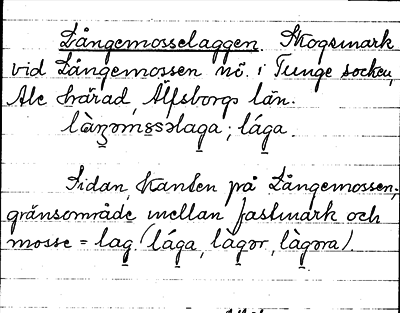 Långemosselaggen. Skogsmark
vid Långemossen nö. i Tunge socken,
Ale härad, Älfsborgs län.
làŋəms̥səlaga; lága.
Sidan, kanten på Långemossen;
gränsområde mellan fastmark och
mosse = lag (lága, làgər, làgəra).